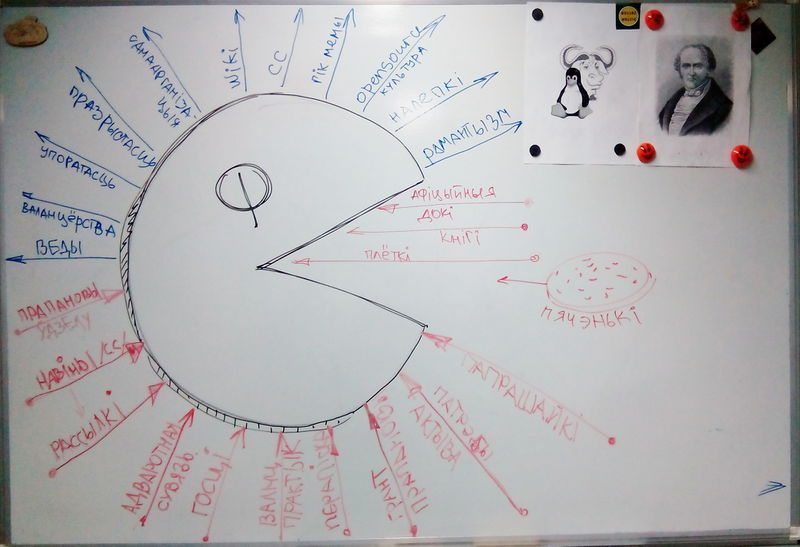 самаарганіза-
цыя
wiki
CC
гік мемы
opensource
культура
налепкі
рамантызм
празрыстасць
упоратасць
валанцёрства
веды
афіцыйныя
докі
кнігі
плёткі
пячэнькі
прапановы
удзелу
навіны
рассылкі
адваротная
сувязь
госці
валанц.
практык
грант
патрэбы
актыва
папрашайкі